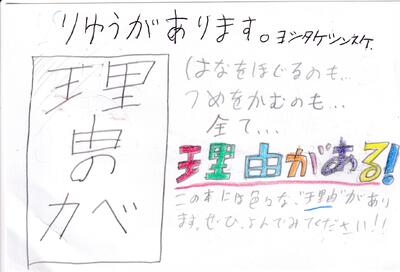 りゆうがあります。ヨシタケシンスケ.
理
由
カベ
はなをほじるのも...
つめをかむのも...
全て...
理由がある!
この本には色々な、"理由"があり
ます。ぜひ、よんでみてください!!